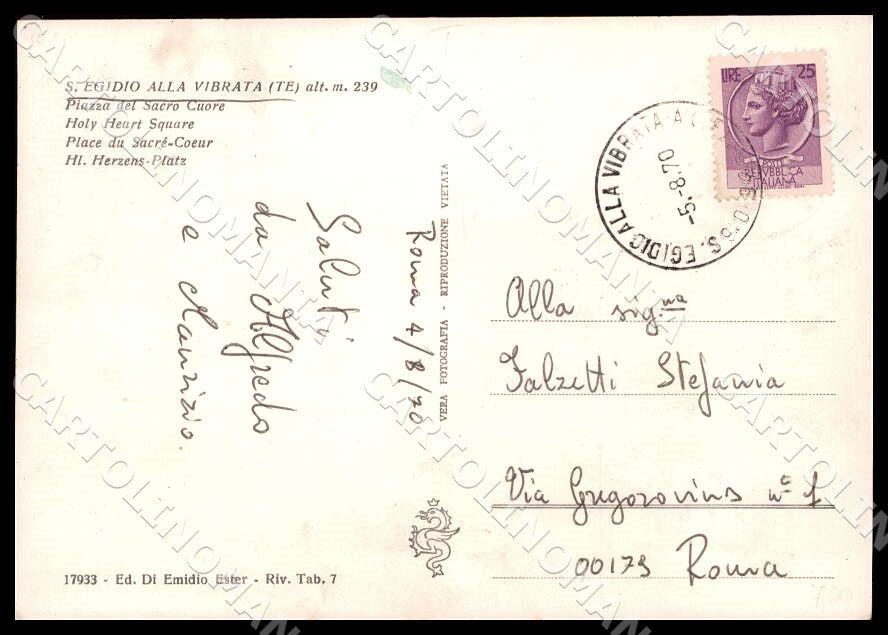 S. EGIDIO ALLA VIBRATA (TE) alt. m. 239
Piazza del Sacro Cuore
Holy Heart Square
Place du Sacré-Coeur
Hl. Herzens-Platz
Saluti
da Alfredo
e Maurizio.
Roma 4/8/70
VERA FOTOGRAFIA - RIPRODUZIONE VIETATA
17933 - Ed. Di Emidio Ester - Riv. Tab. 7
LIRE 25
POSTE
REPVBBLICA
ITALIANA
S. EGIDIO ALLA VIBRATA
-5.-8.70
Alla sig.na
Falzetti Stefania
Via Gregorovius n°
00179 Roma
CARTOLINOMANIA